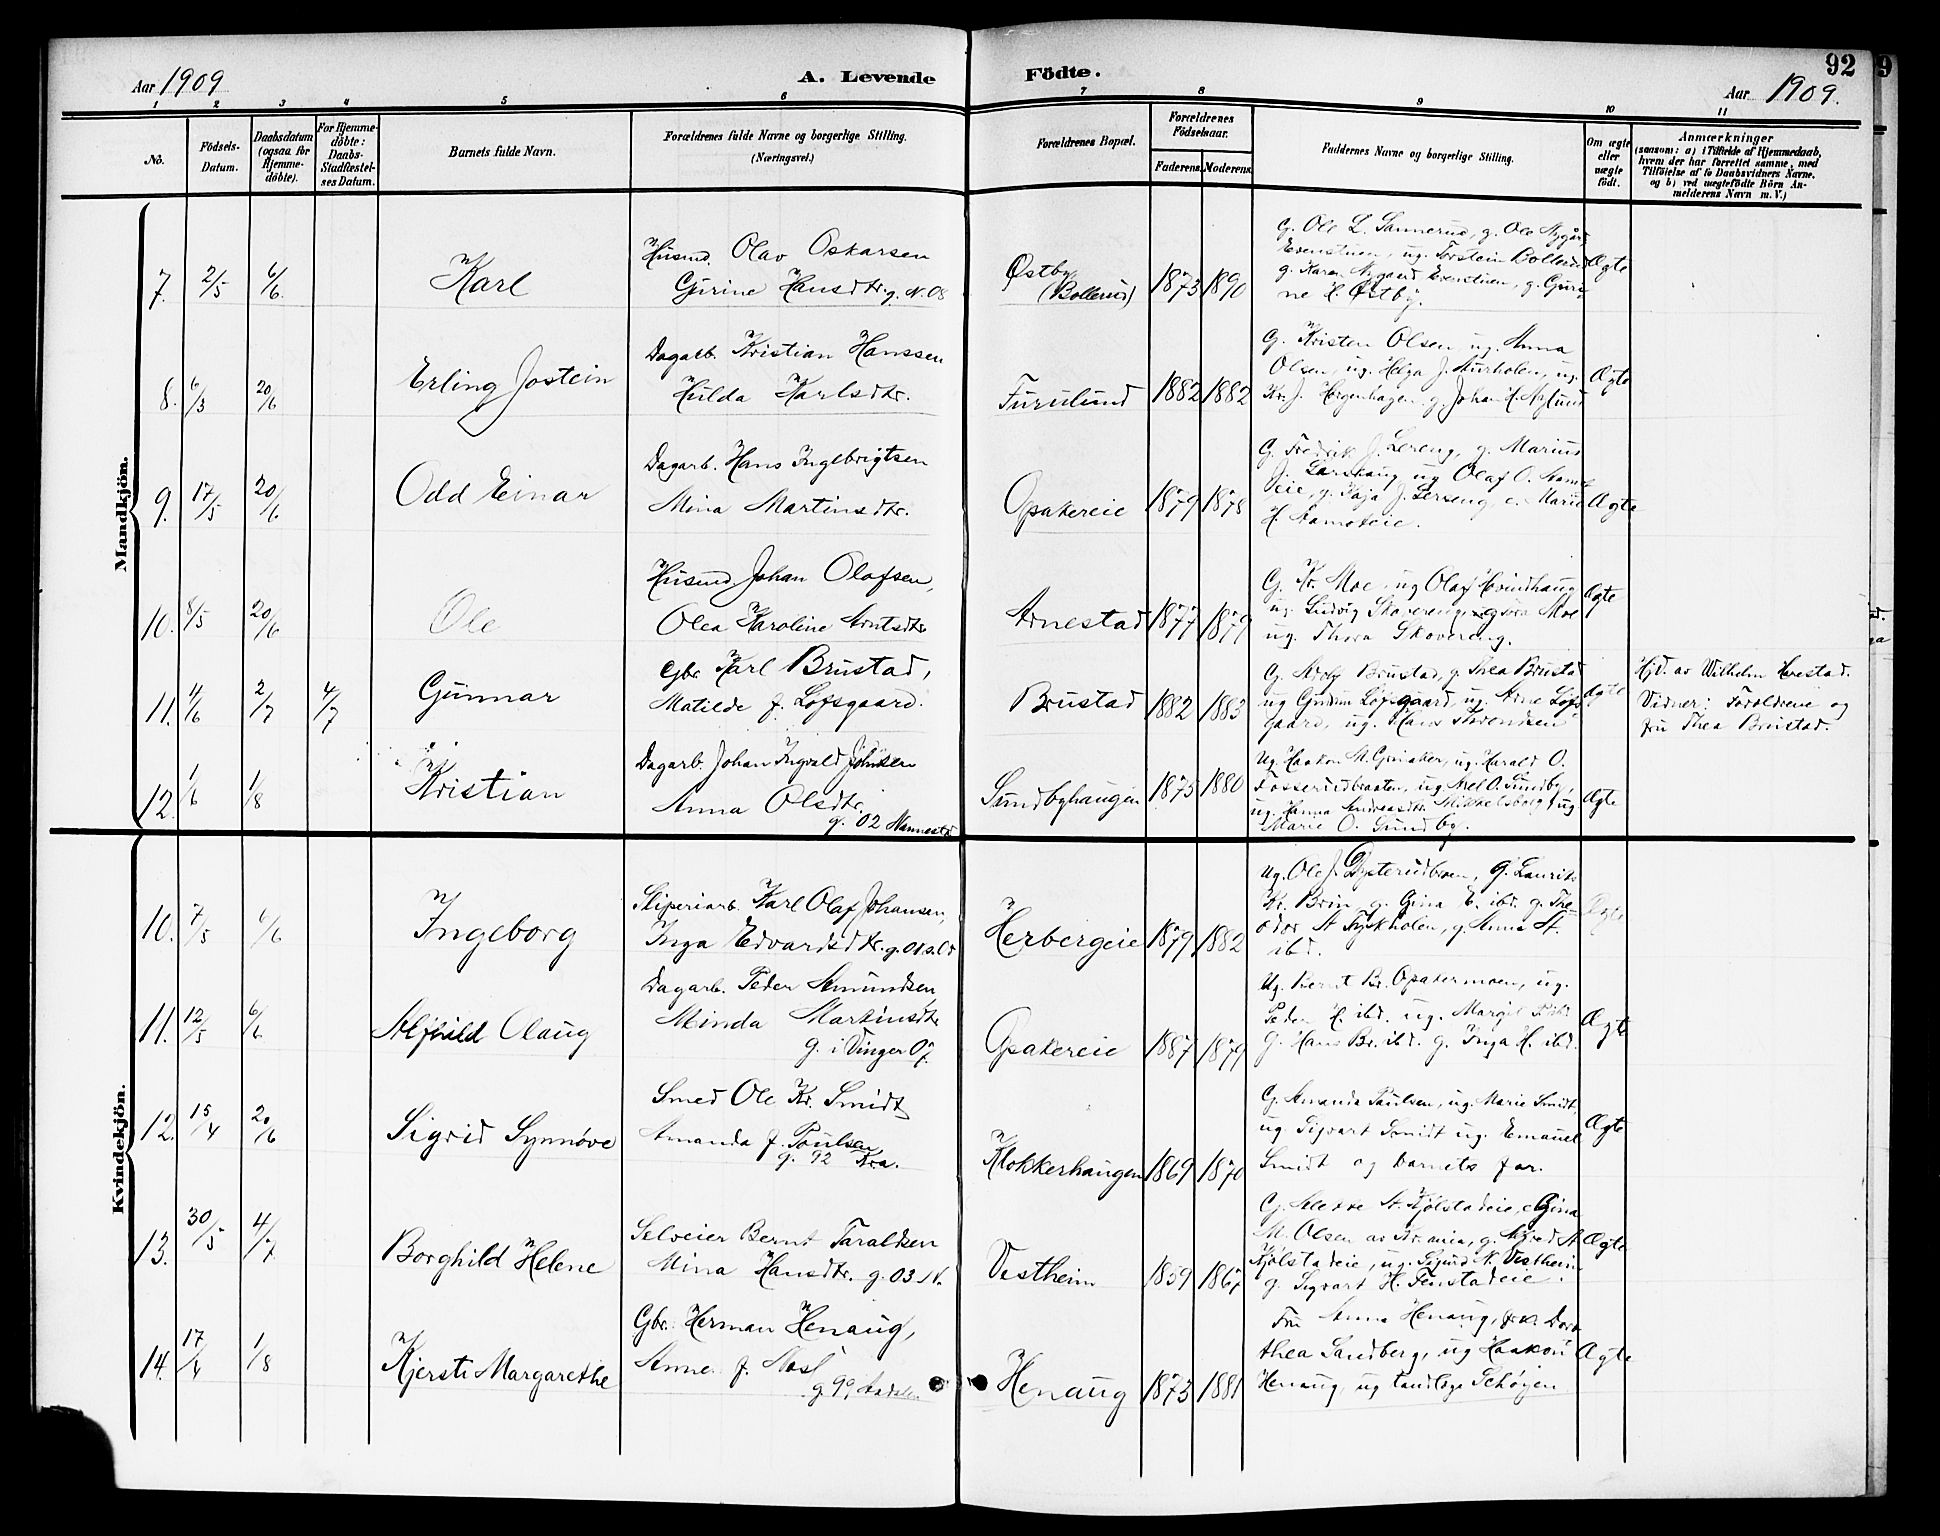 92
9
Aar 1909
A. Levende
Födte.
Aar 1909.
1 2 3 4 5 6 7 8 9 10 11
No.
Födsels-
Datum.
Daabsdatum
(ogsaa for
Hjemme-
döbte).
For Hjemme-
döbte:
Daabs-
Stadfæstel-
ses Datum.
Barnets fulde Navn.
Forældrenes fulde Navne og borgerlige Stilling.
(Næringsvei.)
Forældrenes Bopæl.
Forældrenes
Födselsaar.
Faderens.
Moderens.
Faddernes Navne og borgerlige Stilling.
Om ægte
eller
uægte
födt.
Anmærkninger
(saasom: a) i Tilfælde af Hjemmedaab,
hvem der har forrettet samme, med
Tilföielse af to Daabsvidners Navne.
og b) ved uægtefödte Börn An-
melderens Navn m. V.)
Mandkjön.
7. 2/5 6/6 Karl
Husmd. Olav Oskarsen
Gurine Hansdtr. g. N. 08
Østby
(Bollerud)
1873 1890
G. Ole L. Sannerud, g. Ole Nygård
Evenstuen, ug. Torstein Bollerud
g. Karen Nygaard Evenstuen, g. Guri-
ne H. Østby.
Ægte
8. 6/3 20/6 Erling Jostein
Dagarb. Kristian Hanssen
Hulda Karlsdtr.
Furulund
1882 1882
G. Kristen Olsen, ug. Anna
Olsen, ug. Helga J. Aurholen, ug.
Kr. J. Hergenhagen g. Johan H. Nylund
Ægte
9. 17/5 20/6 Odd Einar
Dagarb. Hans Ingebrigtsen
Mina Martinsdtr.
Opakereie
1879 1878
G. Fredrik J. Lereng, g. Marius
J. Larshaug ug Olaf O.
eie, g. Kaja J. Lereng, e. Marie
H.
Ægte
10. 8/5 20/6 Ole
Husmd. Johan Olafsen,
Olea Karoline Arntsdtr
Arnestad
1877 1879
G. Kr. Moe, ug Olaf
ug. Ludvig Skovereng, Moe
ug. Thora Skovereng.
Ægte
11. 11/6 2/7 4/7 Gunnar
Gbr. Karl Brustad,
Matilde f. Løfsgaard.
Brustad
1882 1883
G. Adolf Brustad, g. Thea Brustad
ug Gudrun Løfsgaard, ug. Arne Løfs
gaard, ug. Hans
Ægte
Hjd. av Wilhelm Herestad.
Vidner: Foræld­rene og
fru Thea Brustad.
12. 1/6 1/8 Kristian
Dagarb. Johan Ingvald Johnsen
Anna Olsdtr.
g. 02 Nannestad
Sundbyhaugen
1875 1880
Ug. Haakon M. Griniaker, ug. Harald O.
Fosserudbraaten, ug. Axel O. Sundby,
ug. Hanna Andreasdtr. Mikkelsborg, ug
Marie O. Sundby.
Ægte
Kvindekjön.
10. 7/5 6/6 Ingeborg
Sliperiarb. Karl Olaf Johansen,
Inga Edvardsdtr. g. 01
Herbergeie
1879 1882
Ug. Ole J. Dysterudbroen, G. Laurits
Kr. Brun, g. Gina E. ibd. g. The-
odor A. Fyskholen, g. Anna A.
ibd.
Ægte
11. 12/5 6/6 Alfhild Olaug
Dagarb. Peder Amundsen
Minda Martinsdtr
g. i Vinger 07.
Opakereie
1887 1879
Ug. Bernt Br. Opakermoen, ug.
Peder H. ibd. ug. Margit
G. Hans Br. ibd. g. Inga H. ibd.
Ægte
12. 15/4 20/6 Sigrid Synnøve
Smed Ole Kr. Smidt
Amanda f. Poulsen
g. 92 Kra.
Klokkerhaugen
1869 1870
G. Amanda Paulsen, ug. Marie Smidt,
ug. Sigvart Smidt ug. Emanuel
Smidt og barnets far.
Ægte
13. 30/5 4/7 Borghild Helene
Selveier Bernt Taraldsen
Mina Hansdtr. g. 03 N.
Vestheim
1859 1867
G. A. Kjølstadeie, e Gina
M. Olsen av Kr.ania, g. A.
Kjølstadeie, ug. Sigurd N. Vestheim
g. Sigvart H. Fenstadeie.
Ægte
14. 17/4 1/8 Kjersti Margarethe
Gbr. Herman Henaug,
Anne f.
g. 99
Henaug
1873 1881
Fru Anna Henaug, frk. Doro
thea Sandberg, ug Haakon
Henaug, ug tandlæge Schøyen
Ægte